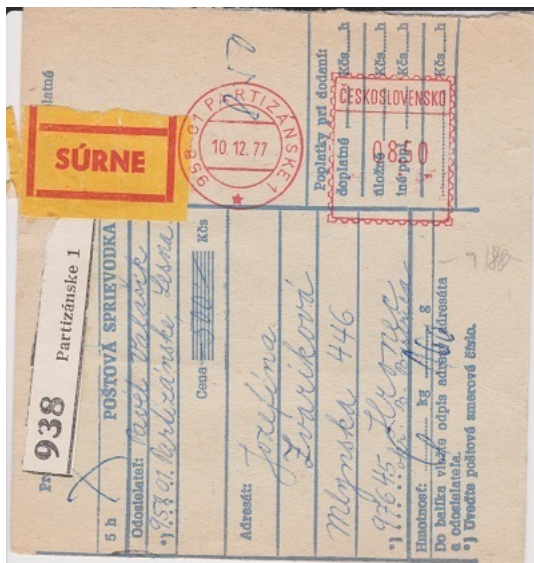 SÚRNE
958 01 PARTIZÁNSKE 1
10.12.77
ČESKOSLOVENSKO
0850
Poplatky pri dodaní:
doplatné Kčs h
úložné Kčs h
iné popl. Kčs h
Kčs h
platné
938 Partizánske 1
5 h POŠTOVÁ SPRIEVODKA
Odosielateľ: Pavel Valašík
*) 958 01 Partizánske, Lesná
Cena Kčs
Adresát: Jozefína
Zvaríková
Mlynská 446
*) 976 45 Hronec
Hmotnosť: kg g
Do balíka vložte odpis adresy adresáta
a odosielateľa.
*) Uveďte poštové smerové číslo.